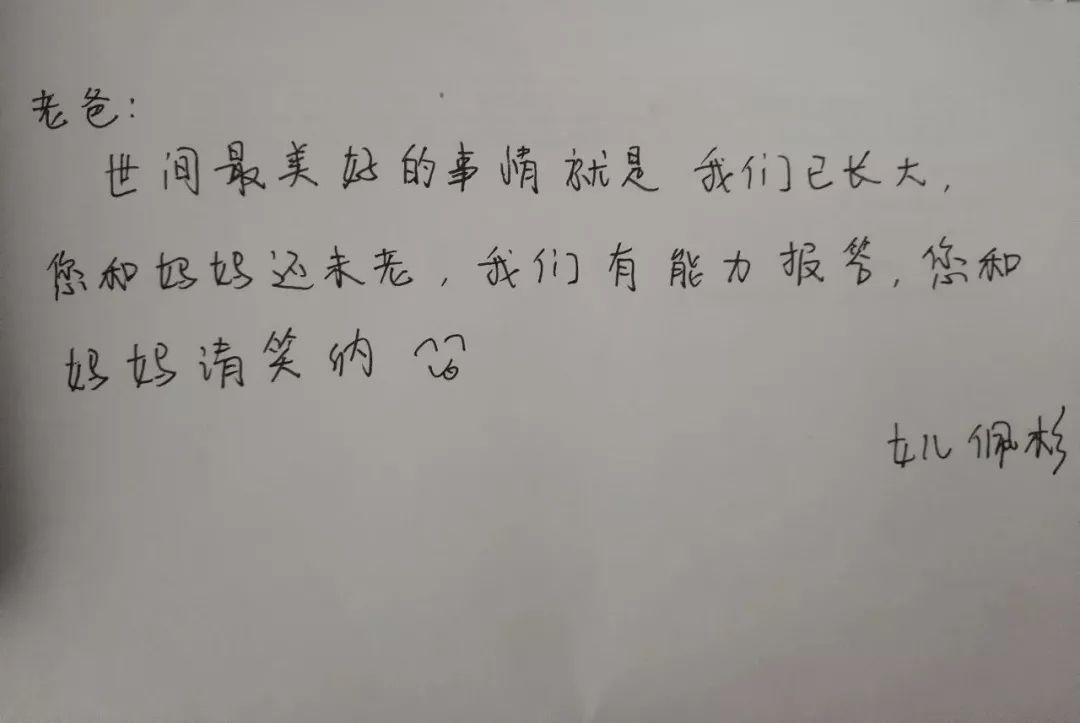 老爸：
世间最美好的事情就是我们已长大，
您和妈妈还未老，我们有能力报答，您和
妈妈请笑纳
女儿佩杉